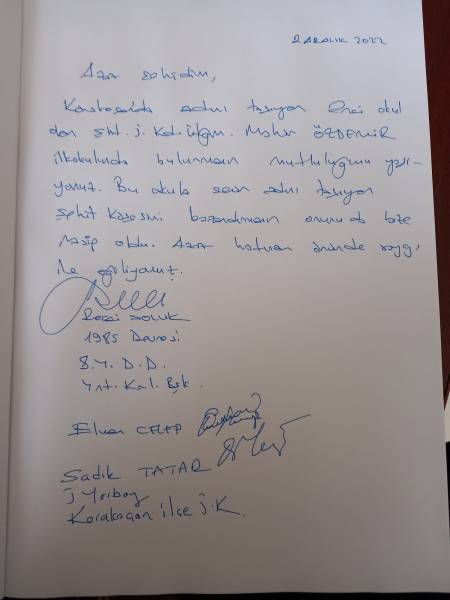 2 ARALIK 2022
Aziz şehidim,
adını taşıyan okul
dan Şht. J. Maher ÖZDEMİR
ilkokulunda bulunmanın mutluluğunu yaşı-
yoruz. Bu okula senin adını taşıyan
Şehit Köşesini kazandırmanın onuru da bize
nasip oldu. Aziz hatıran önünde saygı
ile eğiliyoruz.
1985 Devresi
8. D.D.
Ynt. Krl. Bşk.
Elvan CELEP
Sadık TATAR
J Yarbay
Karakoçan ilçe J.K.